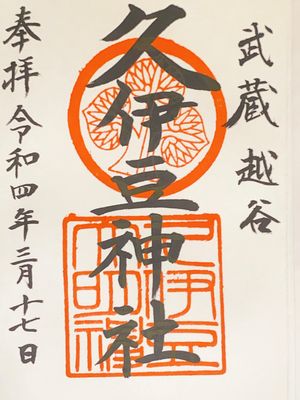 武蔵 越谷
久伊豆神社
奉拝 令和四年三月十七日